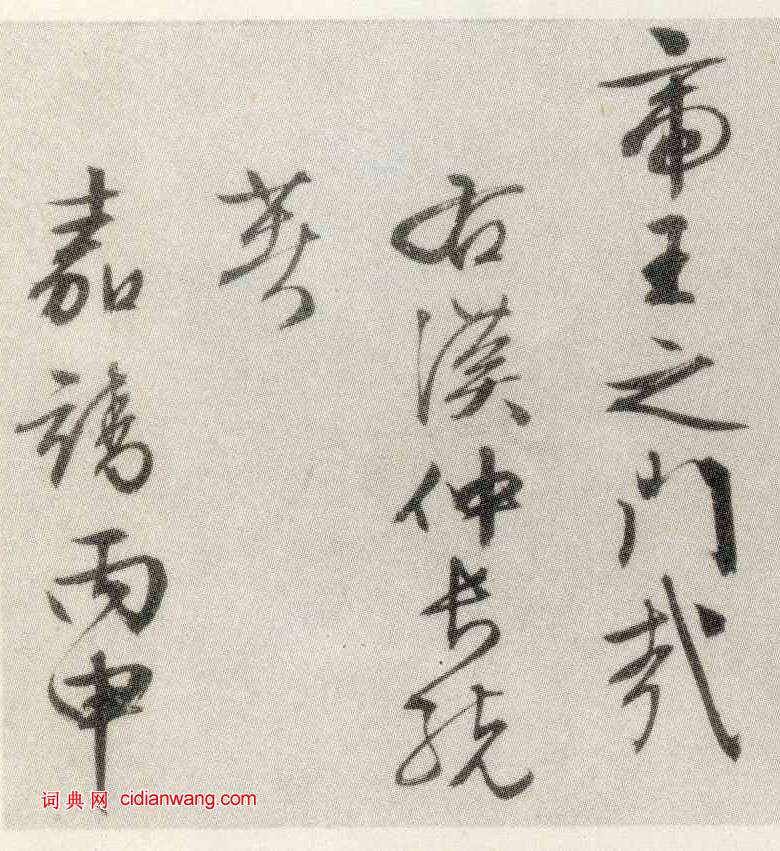 帝王之門哉
右漢仲長統
嘉靖丙申
词典网 cidianwang.com